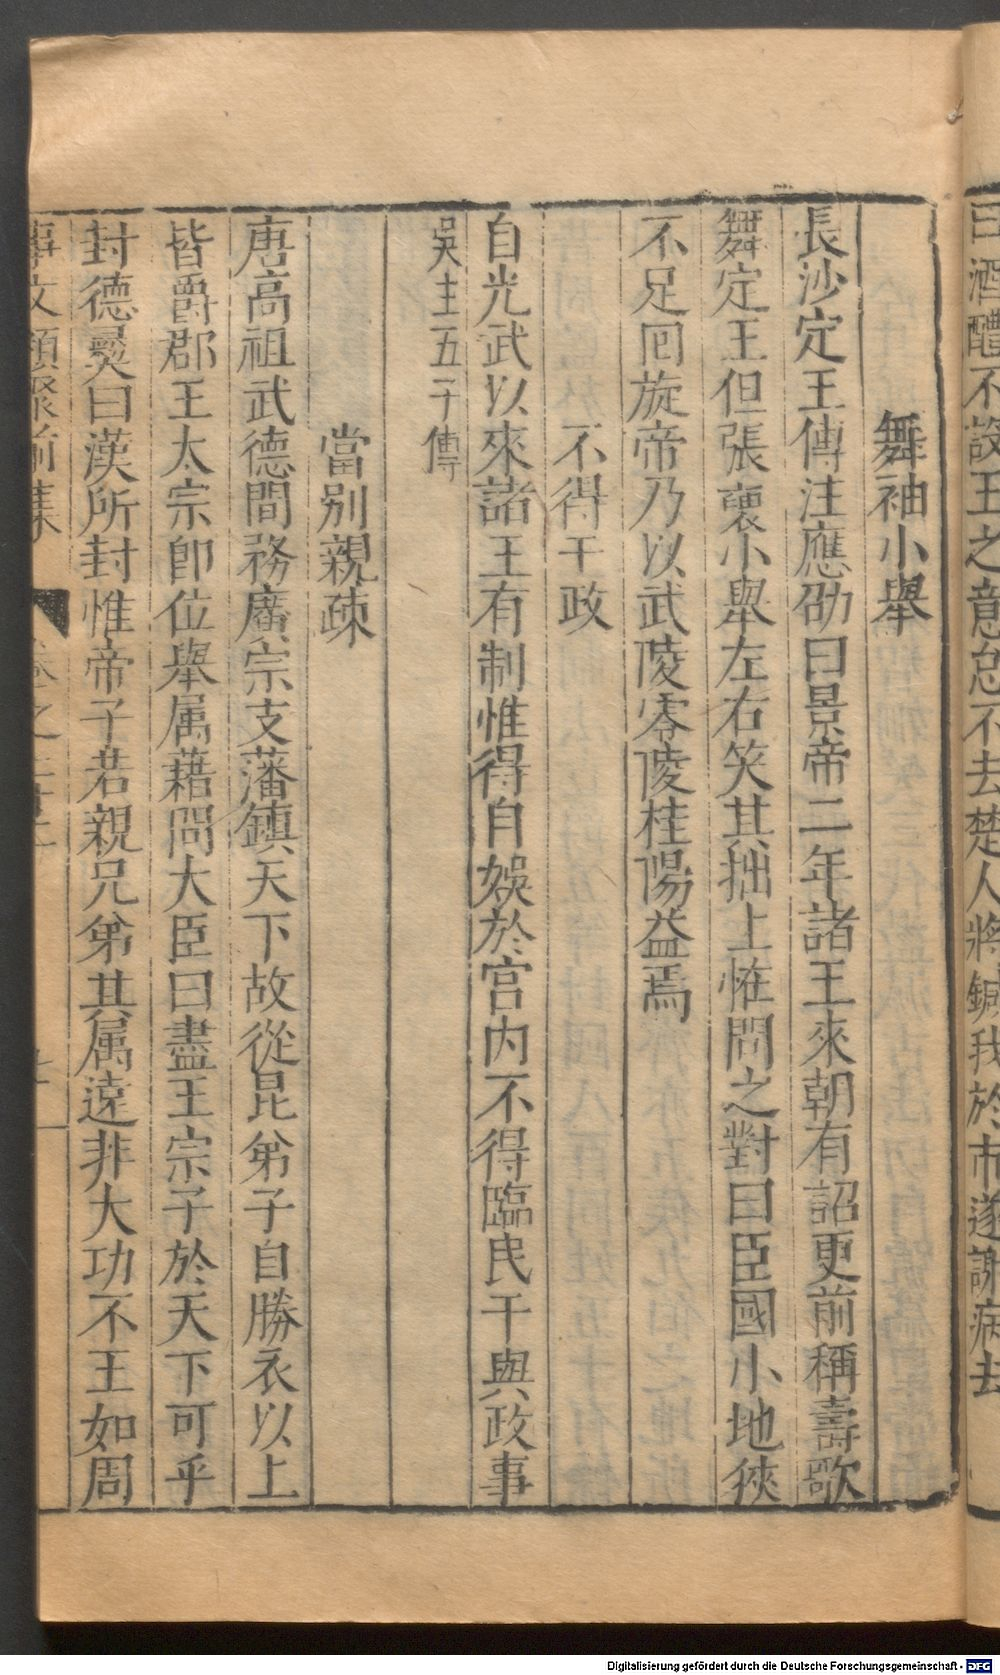 曰酒醴不設王之意怠不去楚人將鉗我於市遂謝病去
舞袖小舉
長沙定王傳注應劭曰景帝二年諸王來朝有詔更前稱壽歌
舞定王但張褏小舉左右笑其拙上恠問之對曰臣國小地狹
不足囘旋帝乃以武陵零陵桂陽益焉
不得干政
自光武以來諸王有制惟得自娛於宫内不得臨民干與政事
吳主五子傳
當别親疎
唐高祖武德間務廣宗支藩鎮天下故從昆弟子自勝衣以上
皆爵郡王太宗即位舉属藉問大臣曰盡王宗子於天下可乎
封德彛曰漢所封惟帝子若親兄弟其属遠非大功不王如周
事文類聚前集
Digitalisierung gefördert durch die Deutsche Forschungsgemeinschaft - DFG